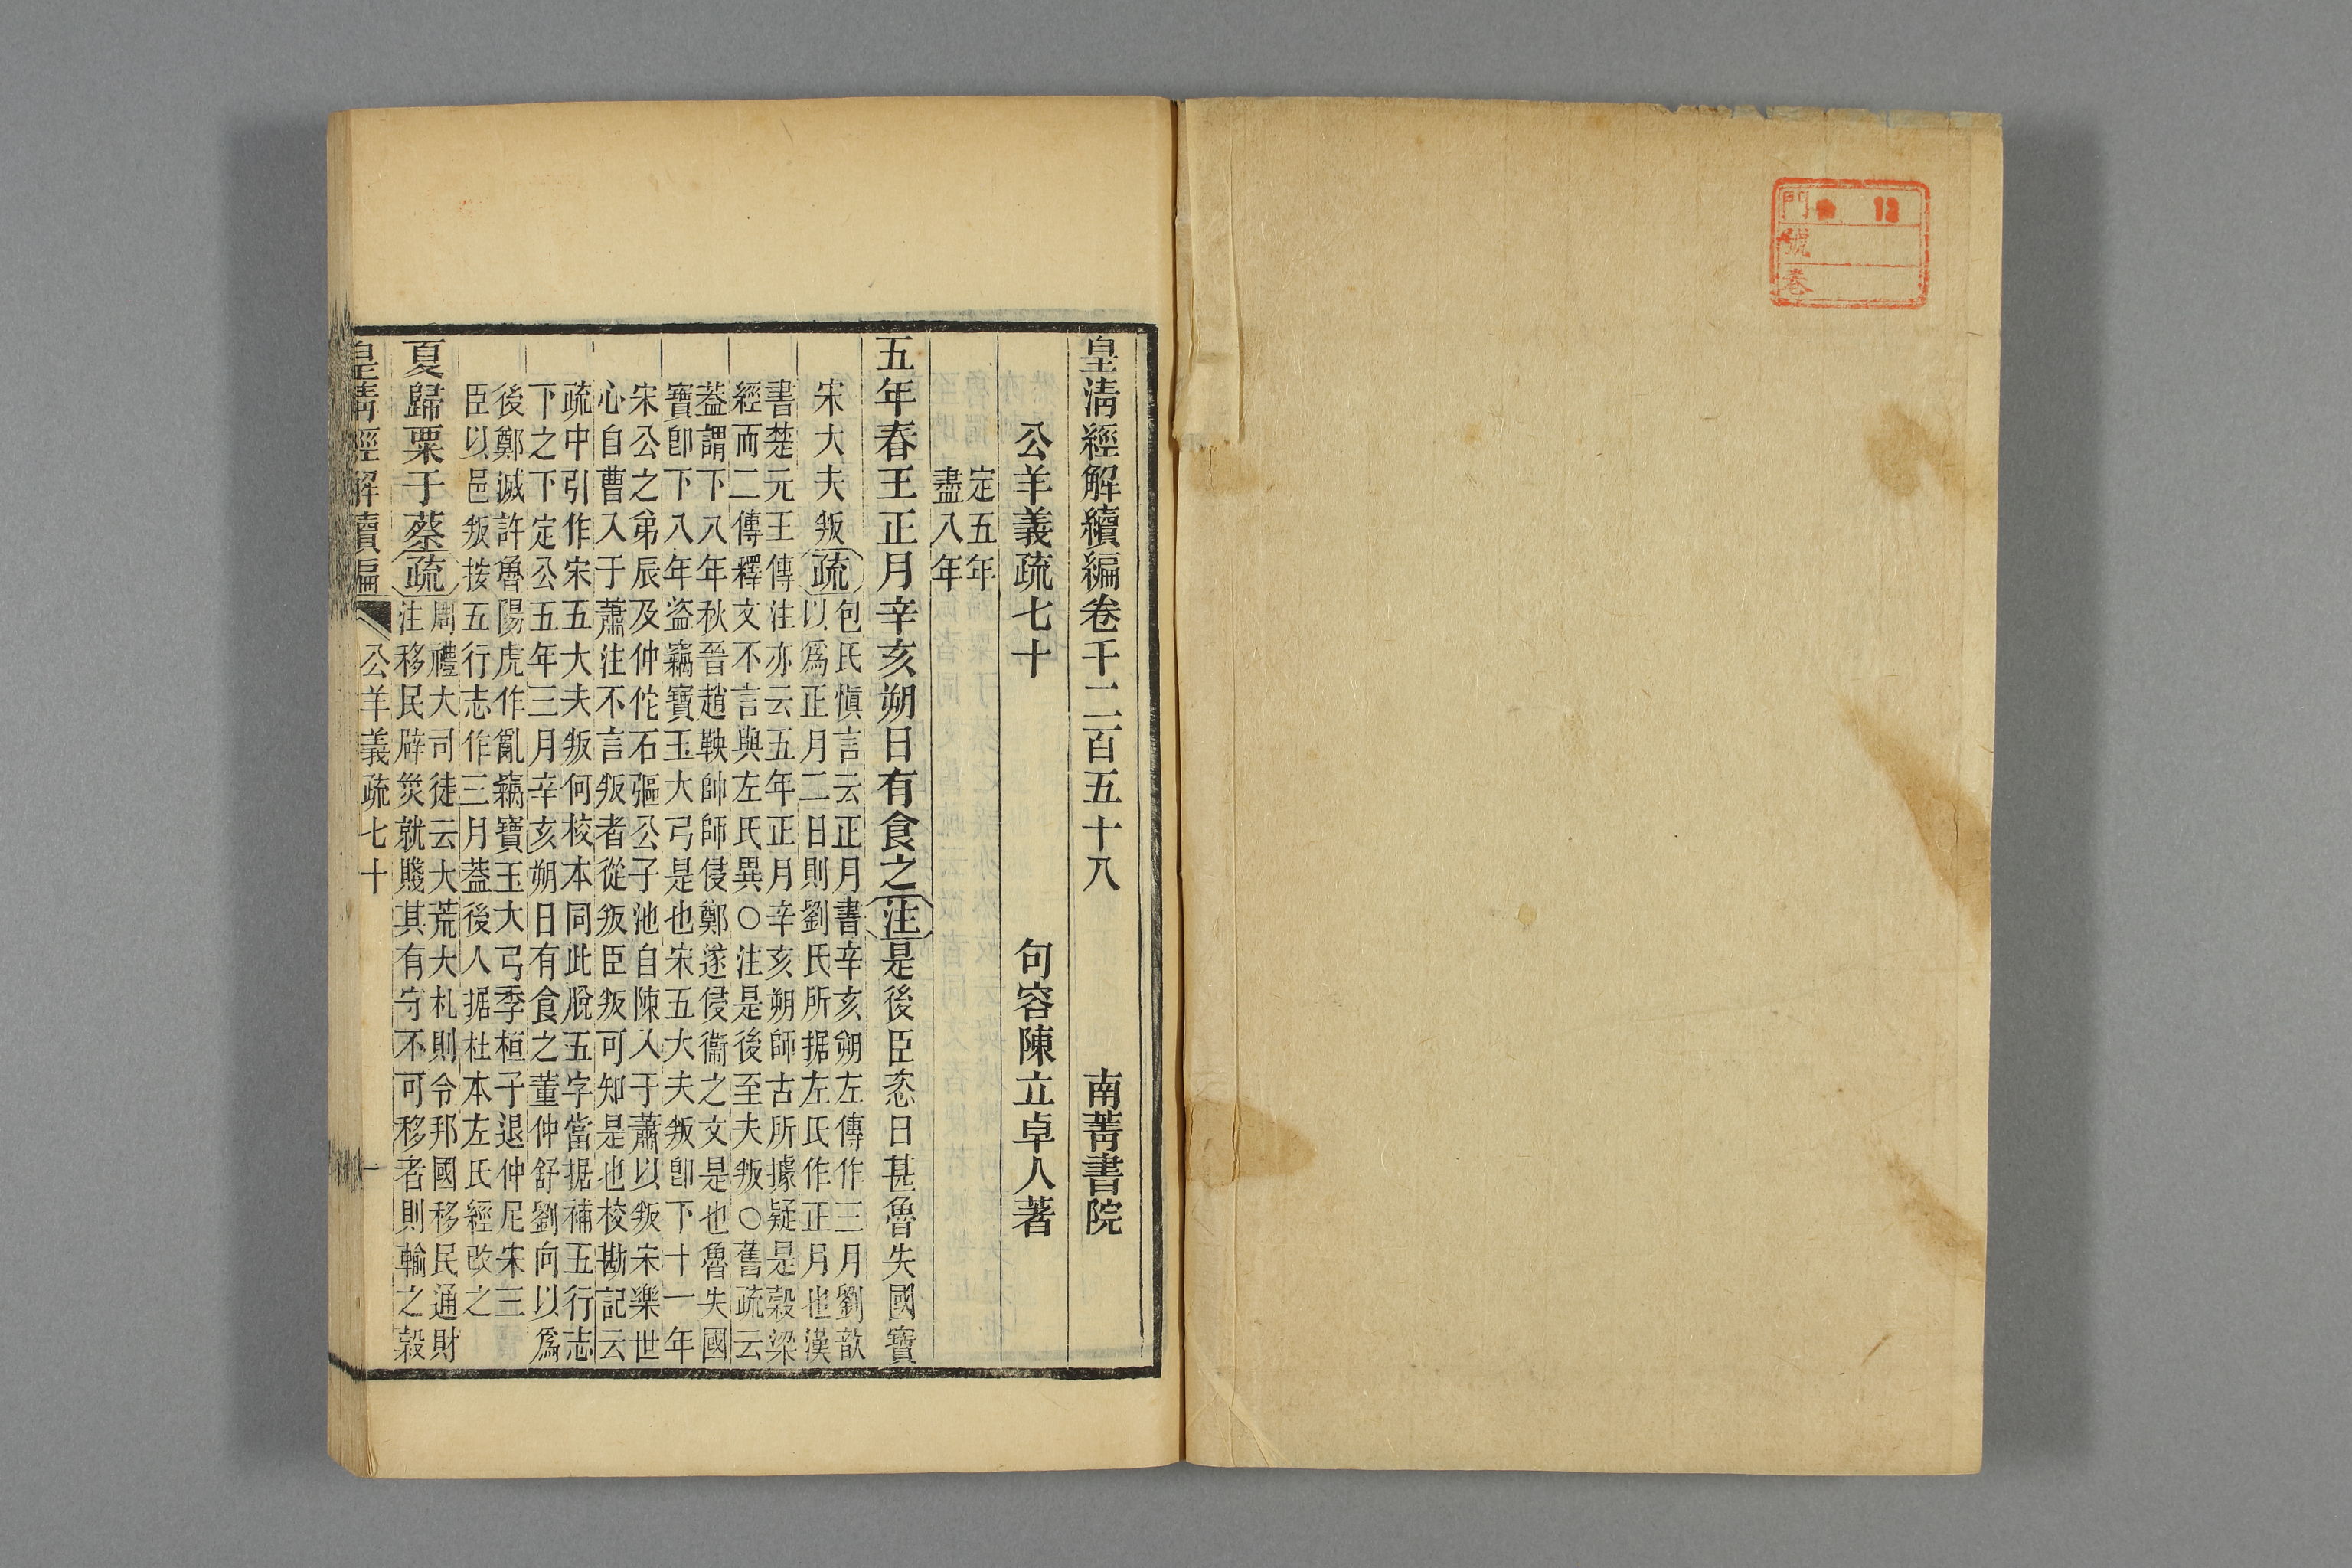 門 13
號
卷
皇清經解續編卷千二百五十八 南菁書院
公羊義疏七十 句容陳立卓人著
定五年
盡八年
五年春王正月辛亥朔日有食之注是後臣恣日甚魯失國寶
宋大夫叛疏
包氏愼言云正月書辛亥朔左傳作三月劉歆
以爲正月二日則劉氏所据左氏作正月也漢
書楚元王傳注亦云五年正月辛亥朔師古所據疑是穀梁
經而二傳釋文不言與左氏異○注是後至夫叛○舊疏云
葢謂下八年秋晉趙鞅帥師侵鄭遂侵衞之文是也魯失國
寶卽下八年盜竊寶玉大弓是也宋五大夫叛卽下十一年
宋公之弟辰及仲佗石彄公子池自陳入于蕭以叛宋樂世
心自曹入于蕭注不言叛者從叛臣叛可知是也校勘記云
疏中引作宋五大夫叛何校本同此脫五字當据補五行志
下之下定公五年三月辛亥朔日有食之董仲舒劉向以爲
後鄭滅許魯陽虎作亂竊寶玉大弓季桓子退仲尼宋三
臣以邑叛按五行志作三月葢後人据杜本左氏經改之
夏歸粟于蔡疏
周禮大司徒云大荒大札則令邦國移民通財
注移民辟災就賤其有守不可移者則輸之穀
皇清經解續編 公羊義疏七十 一